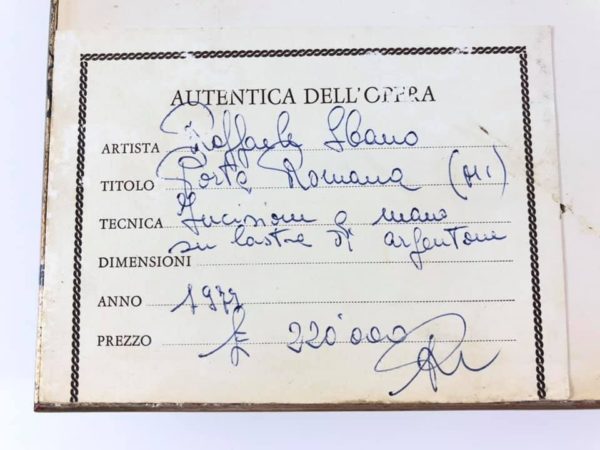 AUTENTICA DELL'OPERA
ARTISTA Raffaele Sbano
TITOLO Porta Romana (MI)
TECNICA Incisione a mano
su lastra di argentone
DIMENSIONI
ANNO 1977
PREZZO £ 220'000